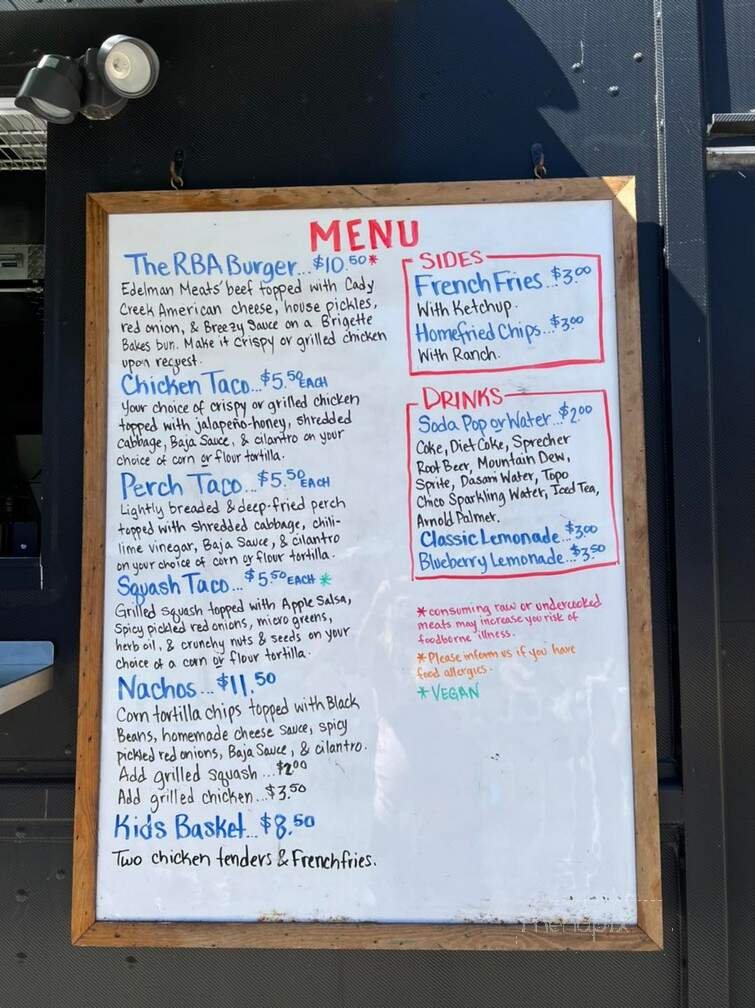 MENU
The RBA Burger...$10.50*
Edelman Meats' beef topped with Cady
Creek American cheese, house pickles,
red onion, & Breezy Sauce on a Brigette
Bakes bun. Make it crispy or grilled chicken
upon request.
Chicken Taco...$5.50 EACH
Your choice of crispy or grilled chicken
topped with jalapeño-honey, shredded
cabbage, Baja Sauce, & cilantro on your
choice of corn or flour tortilla.
Perch Taco...$5.50 EACH
Lightly breaded & deep-fried perch
topped with shredded cabbage, chili-
lime vinegar, Baja Sauce, & cilantro
on your choice of corn or flour tortilla.
Squash Taco...$5.50 EACH *
Grilled squash topped with Apple Salsa,
Spicy pickled red onions, micro greens,
herb oil, & crunchy nuts & seeds on your
choice of a corn or flour tortilla.
Nachos...$11.50
Corn tortilla chips topped with Black
Beans, homemade cheese sauce, spicy
pickled red onions, Baja Sauce, & cilantro.
Add grilled squash...$2.00
Add grilled chicken...$3.50
Kids Basket...$8.50
Two chicken tenders & French fries.
SIDES
French Fries...$3.00
With Ketchup.
Homefried Chips...$3.00
With Ranch.
DRINKS
Soda Pop or Water...$2.00
Coke, Diet Coke, Sprecher
Root Beer, Mountain Dew,
Sprite, Dasani Water, Topo
Chico Sparkling Water, Iced Tea,
Arnold Palmer.
Classic Lemonade...$3.00
Blueberry Lemonade...$3.50
*consuming raw or undercooked
meats may increase you risk of
foodborne illness.
*Please inform us if you have
food allergies.
*VEGAN
menupix